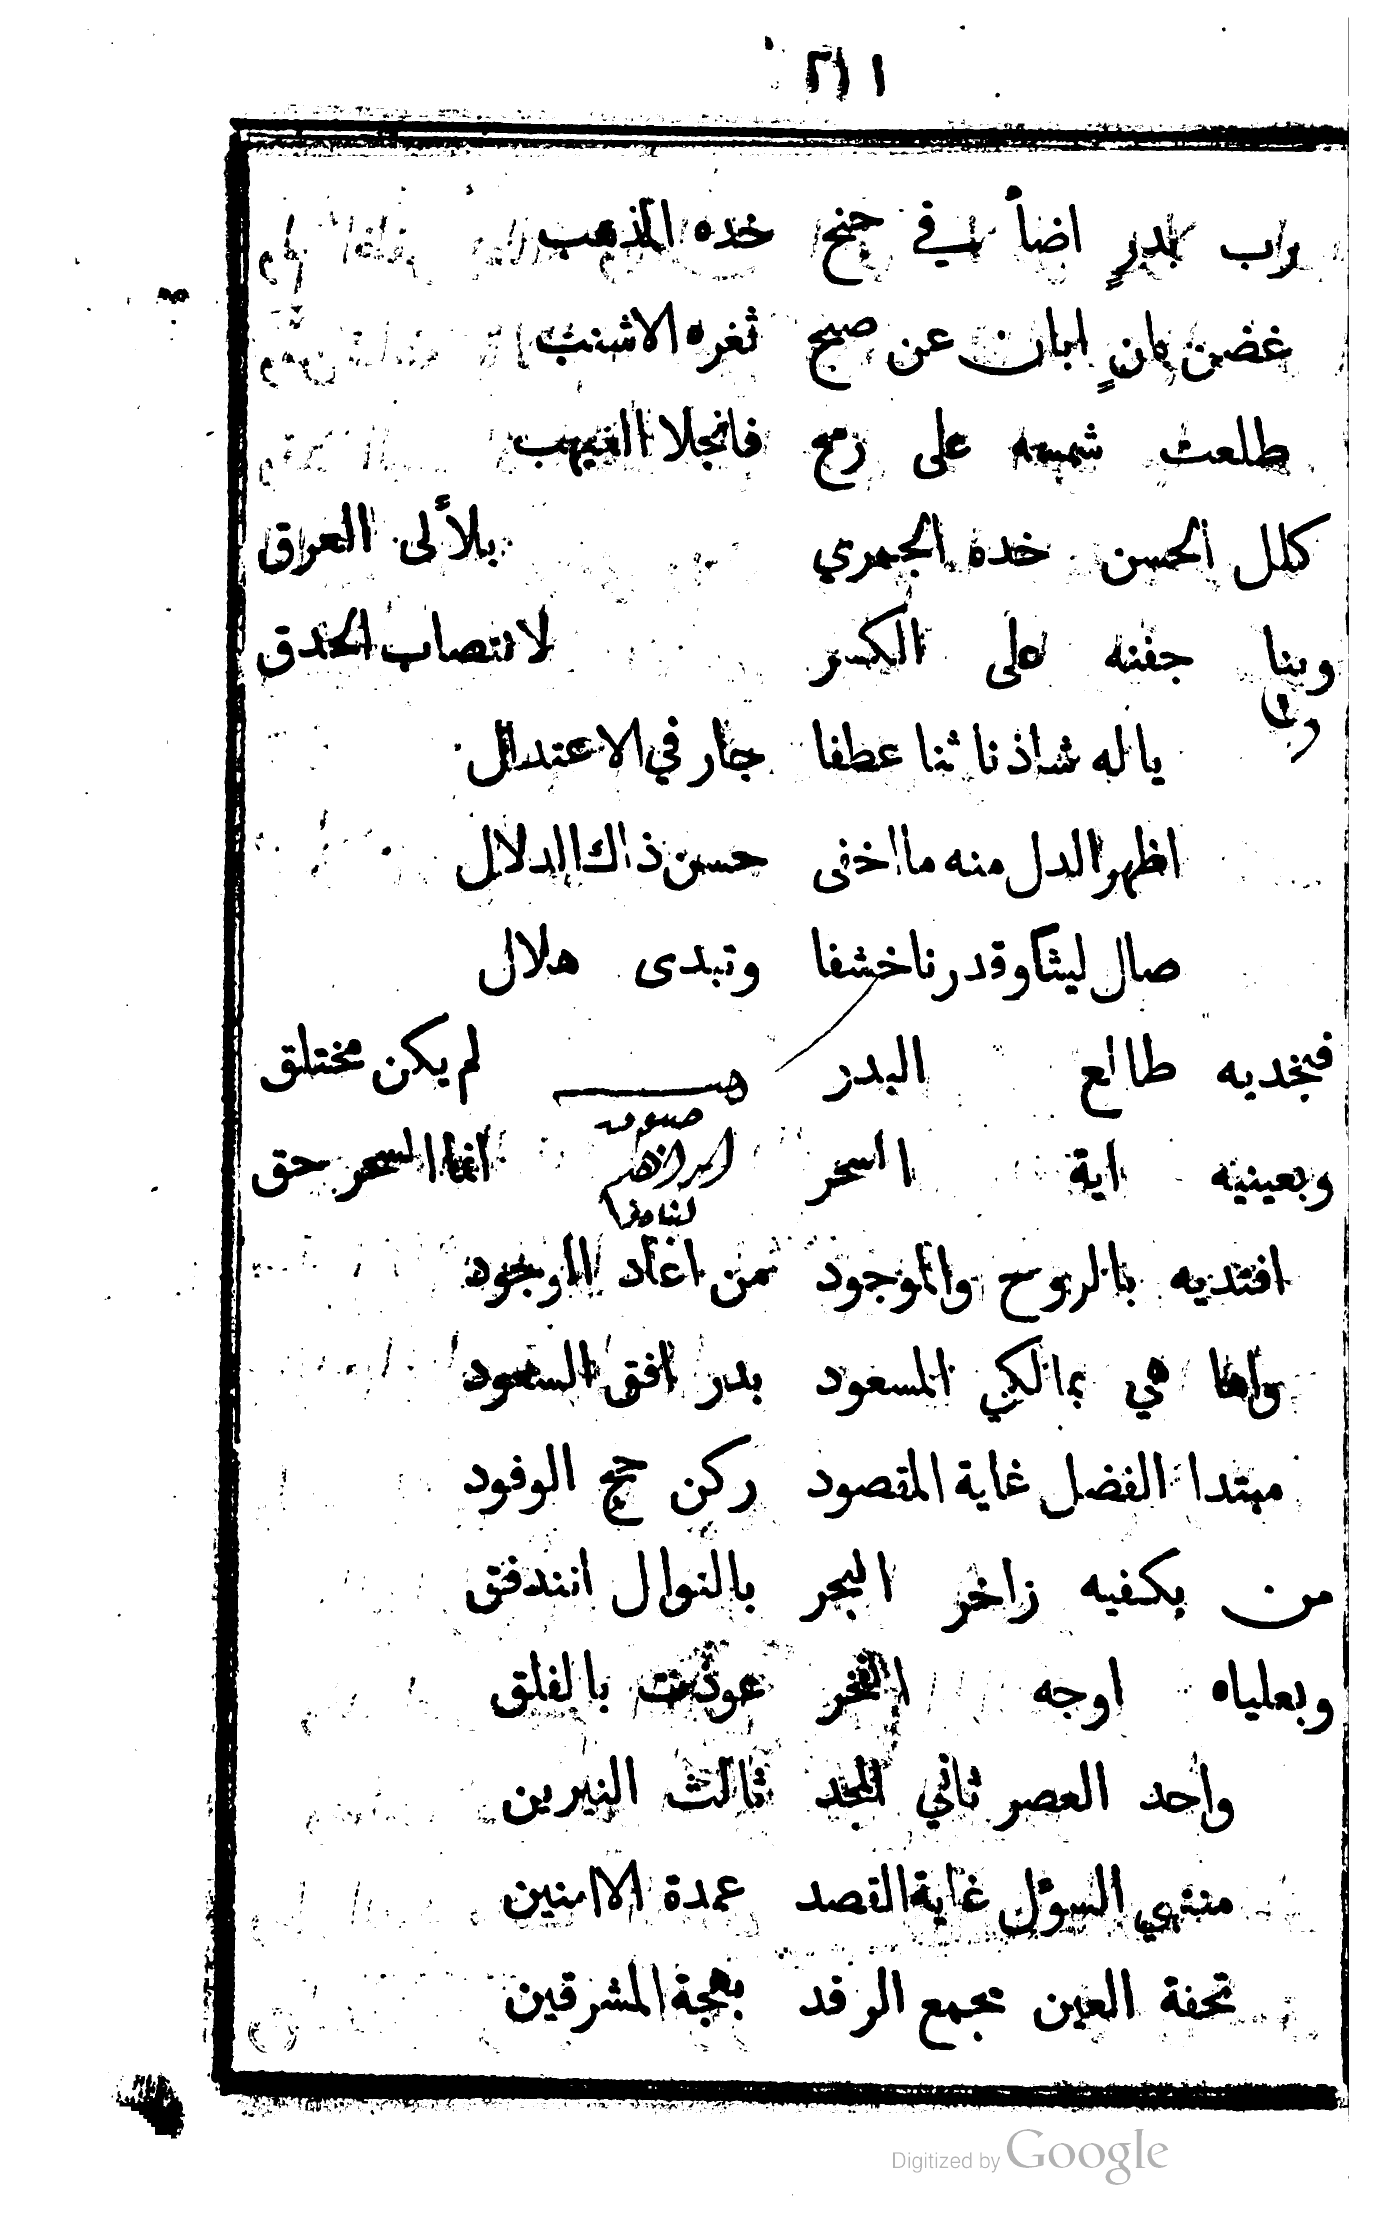 ٢١١
راب بدرٍ اضأ لي في جنح خده المذهب
غصن بانٍ ابان عن صبح ثغره الاشنب
طلعت شمسه على رمح فانجلا الغيهب
كلل الحسن خده الجمري بلألى العراق
وبنا جفنه على الكسر لانتصاب الحدق
ياله شاذنا ثنا عطفا جار في الاعتدال
اظهر الدل منه ما اخفى حسن ذاك الدلال
صال ليثا وقد رنا خشفا وتبدى هلال
فبخديه طالع البدر لم يكن مختلق
وبعينيه اية السحر انما السحر حق
افتديه بالروح والموجود من اعاد الوجود
واها هي بمالكي المسعود بدر افق السعود
مبتدا الفضل غاية المقصود ركن حج الوفود
من بكفيه زاخر البحر بالنوال اندفق
وبعلياه اوجه الفخر عوذت بالفلق
واحد العصر ثاني المجد ثالث النيرين
منتهي السؤل غاية القصد عمدة الامنين
تحفة العين مجمع الرفد بهجة المشرقين
Digitized by Google